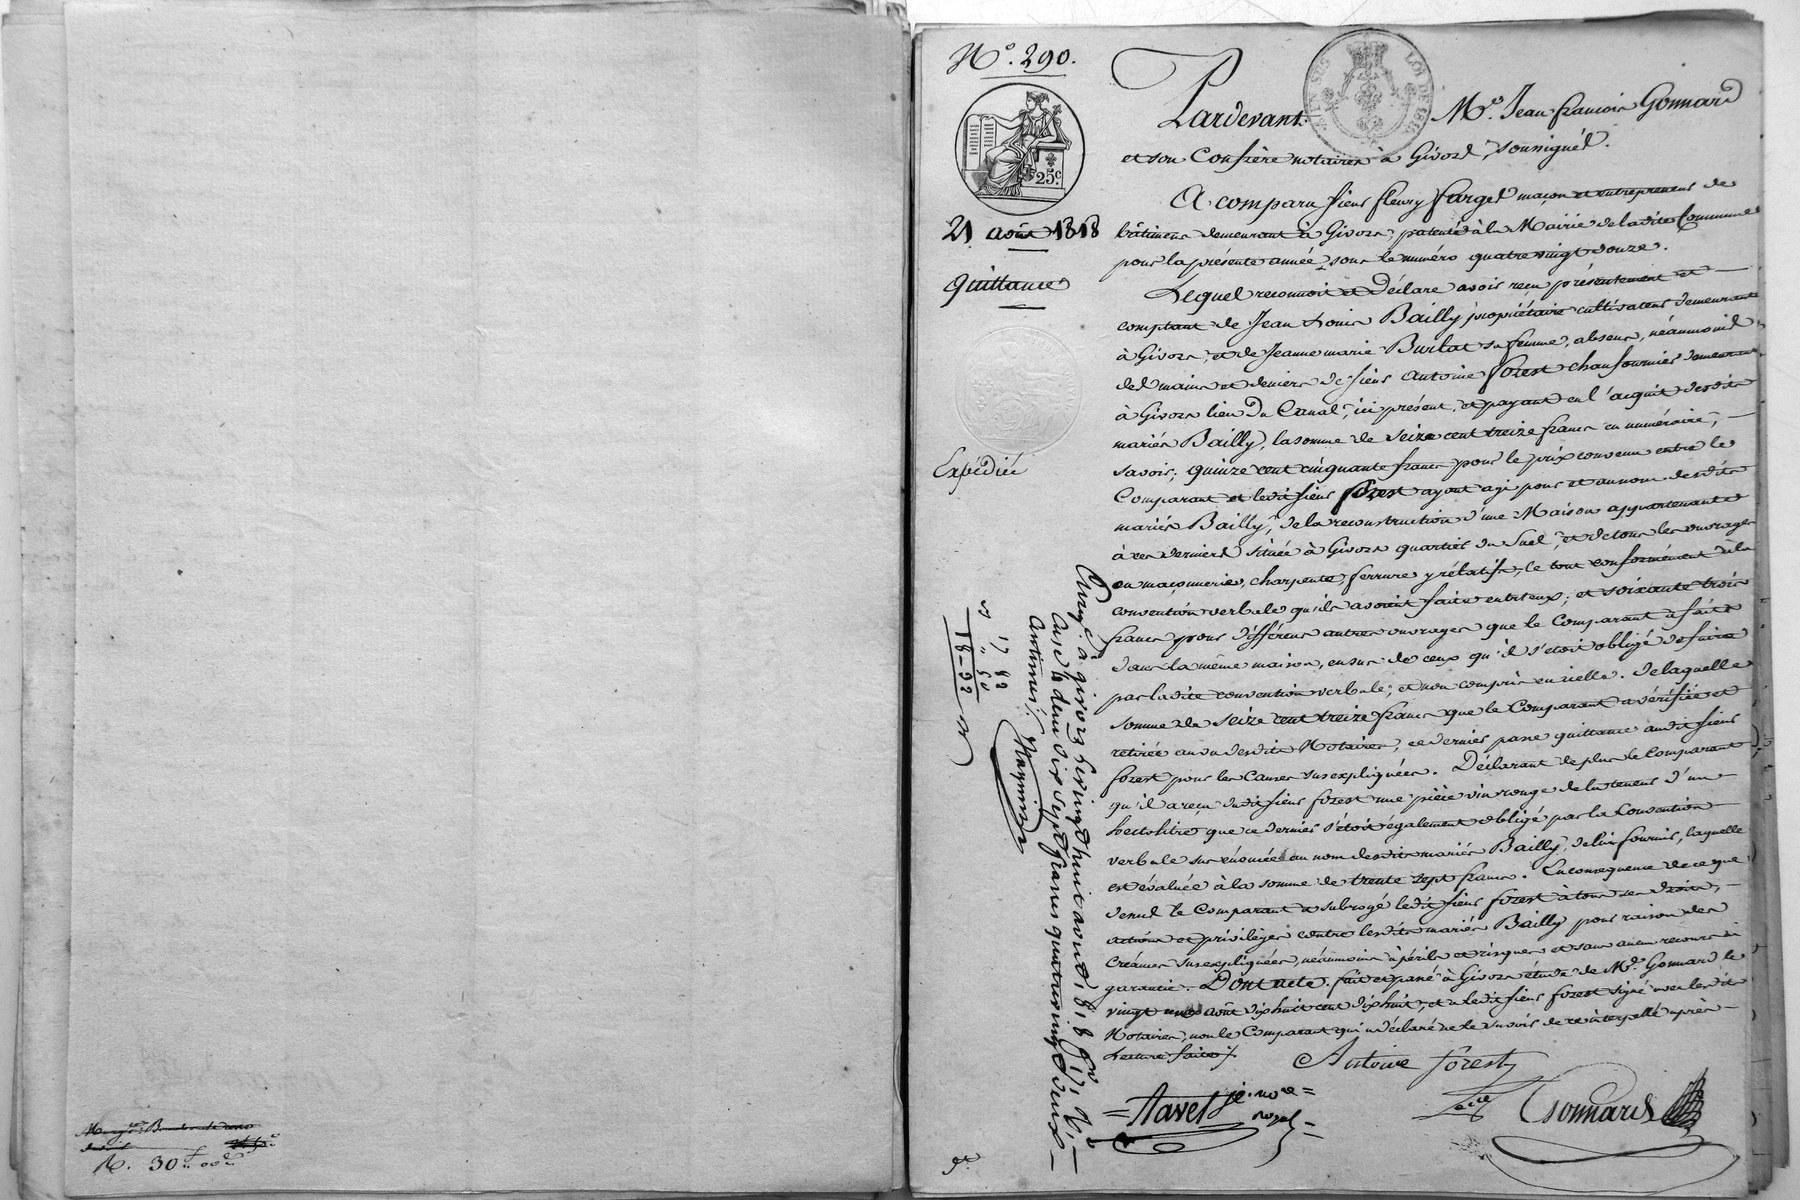 N.º 290.
25.c
21 août 1818
Quittance
Expédiée
Pardevant M.e Jean françois Gonnard
et son Confrère notaires à Givors, soussignés.
A comparu sieur fleury farget maçon et entrepreneur de
bâtimens demeurant à Givors, patenté à la Mairie de ladite Commune
pour la présente année, sous le numéro quatre vingt douze.
Lequel reconnoit et Déclare avoir reçu présentement et
comptant de Jean Louis Bailly propriétaire cultivateur demeurant
à Givors, et de Jeanne marie Burlat sa femme, absens, néanmoins
des mains et deniers de sieur Antoine forest chaufournier demeurant
à Givors lieu du Canal, ici présent, et payant en l'acquit desdits
mariés Bailly, la somme de seize cent treize francs en numéraire,
savoir; quinze cent cinquante francs pour le prix convenu entre le
Comparant et ledit sieur forest ayant agi pour et au nom desdits
mariés Bailly, de la reconstruction d'une Maison appartenante
à ces derniers située à Givors quartier du Suel, et de tous les ouvrages
en maçonnerie, charpente, ferrure y rélatifs, le tout conformément à la
convention verbale qu'ils avoient faite entr'eux; et soixante trois
francs pour différens autres ouvrages que le Comparant a faits
dans la même maison, en sus de ceux qu'il s'étoit obligé de faire
par ladite convention verbale, et non compris en icelle. De laquelle
somme de seize cent treize francs que le Comparant a vérifiée et
retirée au vu desdits Notaires, ce dernier passe quittance audit sieur
forest pour les Causes susexpliquées. Déclarant de plus le Comparant
qu'il a reçu dudit sieur forest une pièce vin rouge de la teneur d'un
hectolitre, que ce dernier s'étoit également obligé par la Convention
verbale sus énoncée au nom desdits mariés Bailly, de lui fournir, laquelle
est évaluée à la somme de trente sept francs. En conséquence de ce que
dessus le Comparant a subrogé ledit sieur forest à tous ses droits,
actions et priviléges contre lesdits mariés Bailly pour raison des
Créances susexpliquées, néanmoins à périls et risques et sans aucun recours ni
garantie. Dont acte. fait et passé à Givors étude de M.e Gonnard le
vingt un août dix huit cent dix huit, et a ledit sieur forest signé avec lesdits
Notaires, non le Comparant qui a déclaré ne le savoir de ce interpellé après
Lecture faite.
Antoine forest
Favel je. no.re
Gonnard
Enrg.é à givors le vingt huit août 1818
deux dix sept francs quatre vingt deux
centimes
17 82
18-92
R. 30